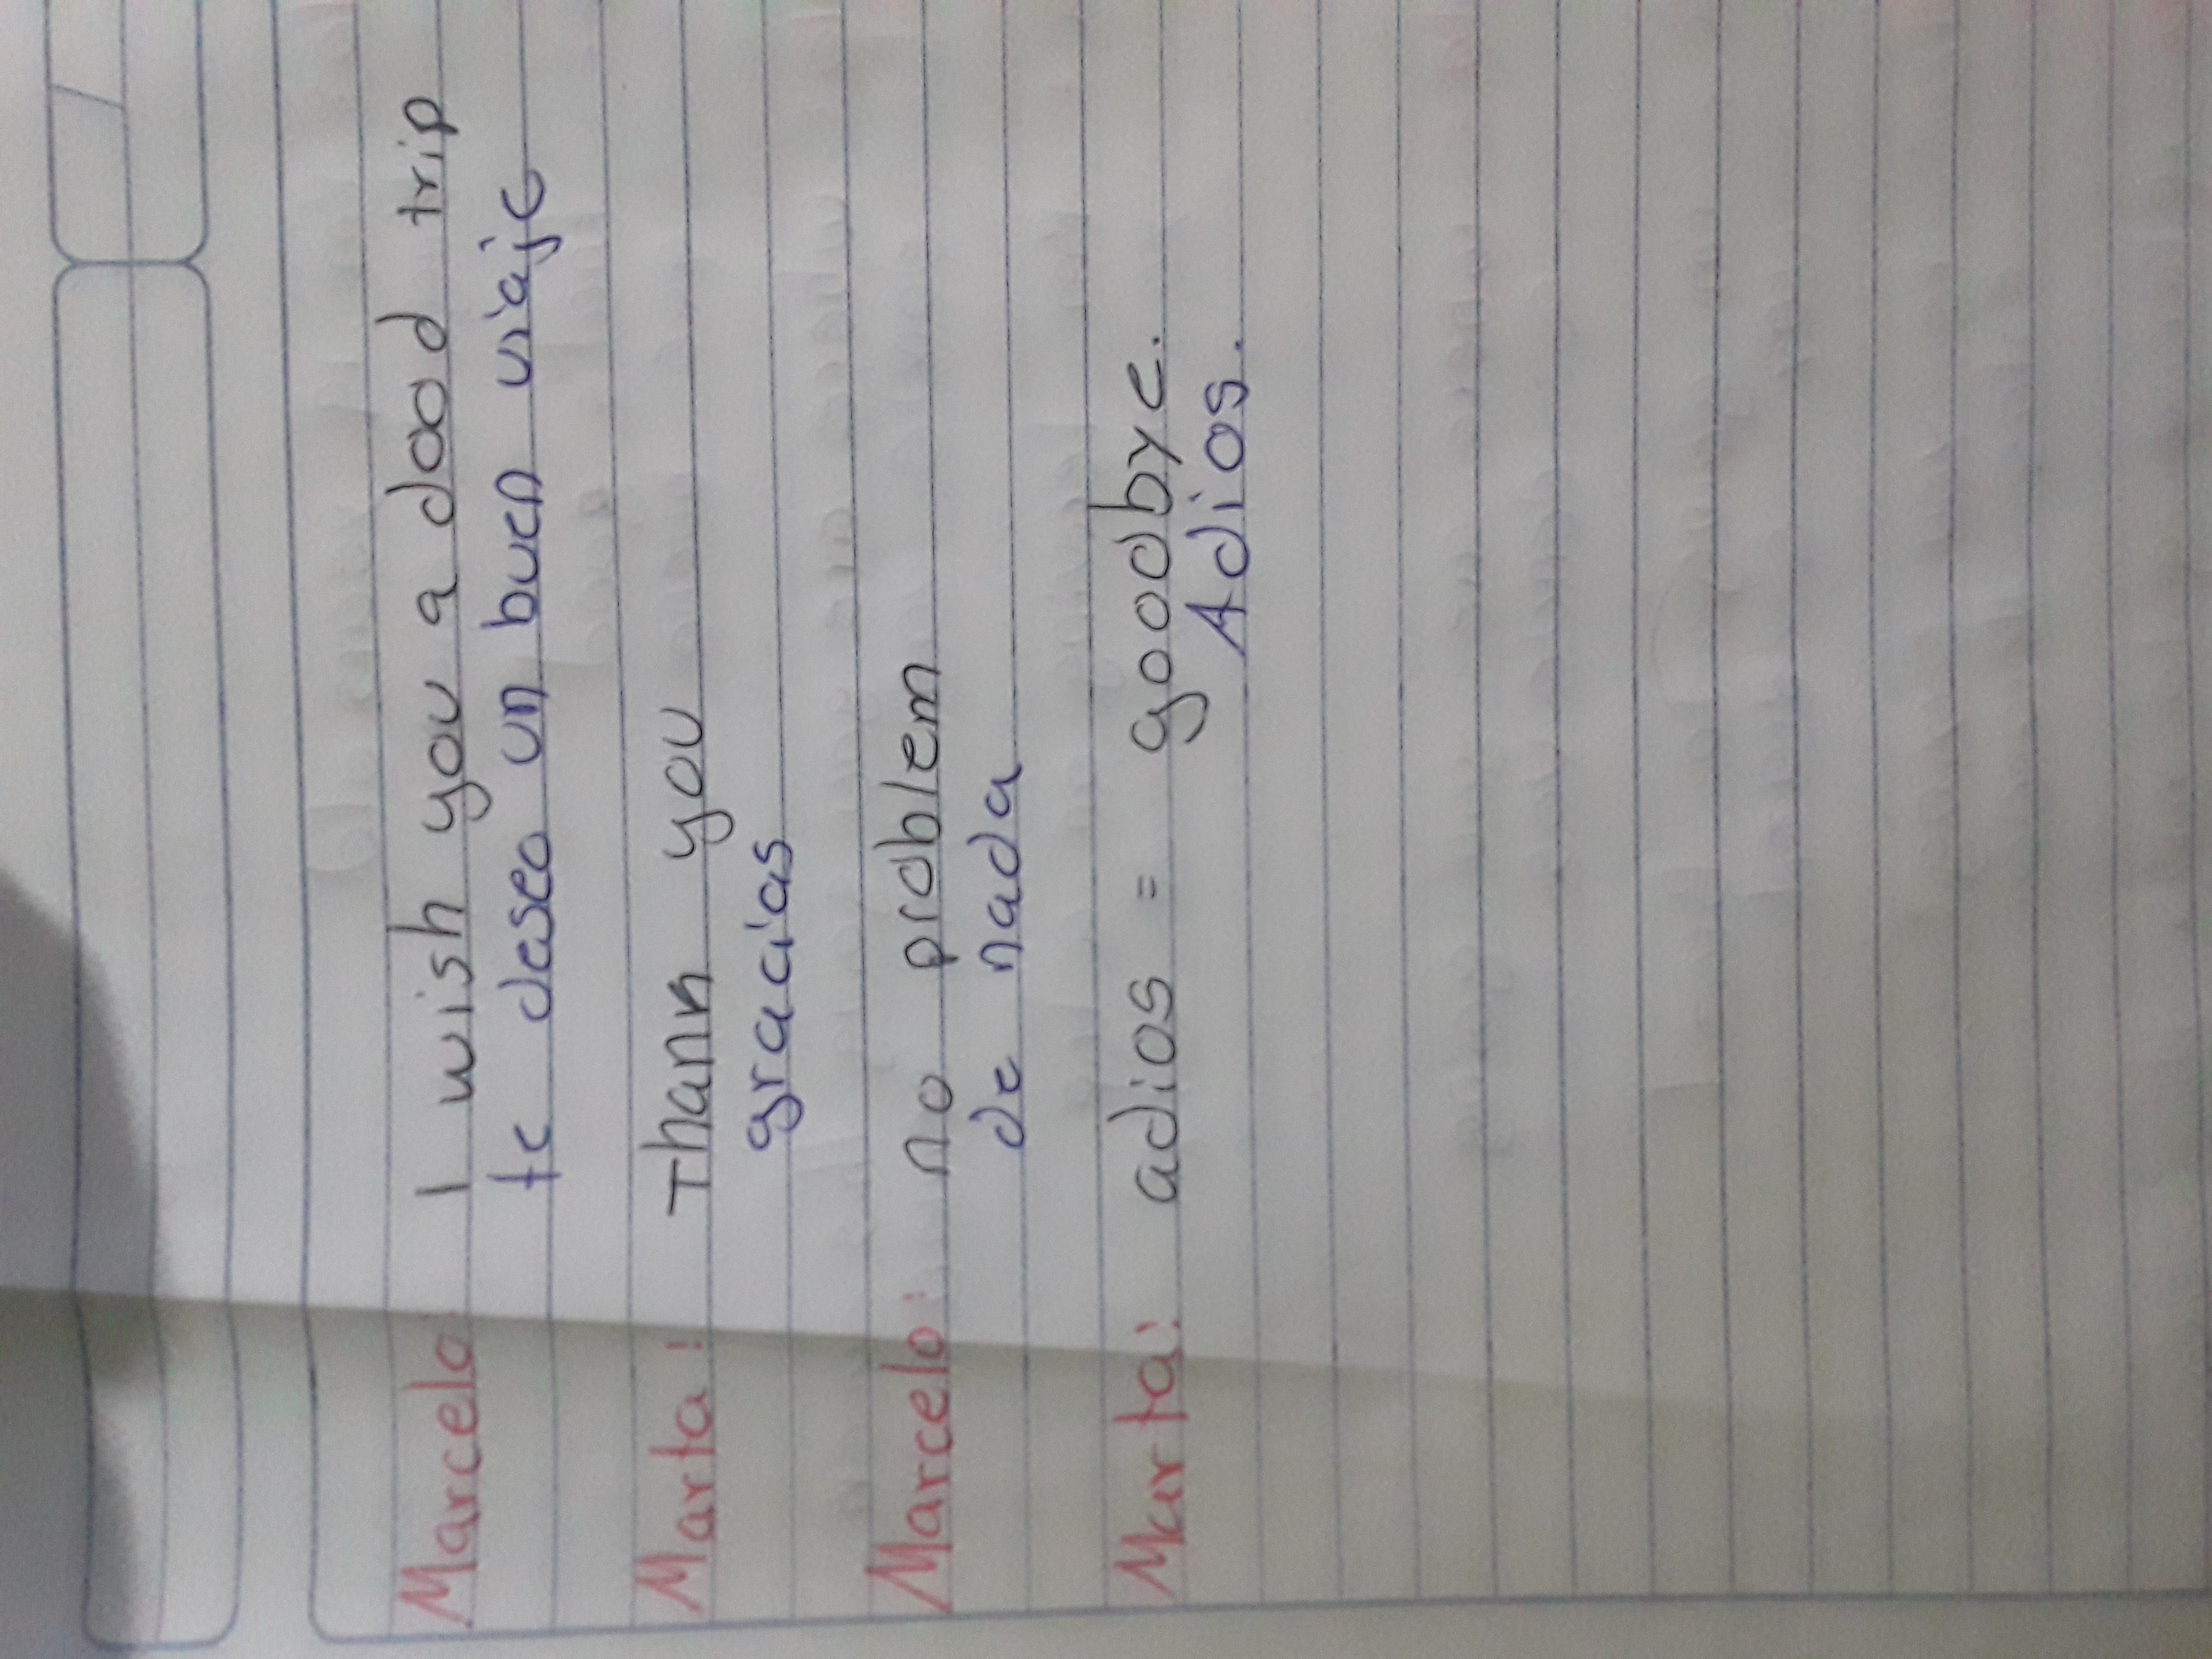 Marcelo: I wish you a dood trip
te deseo un buen viaje
Marta: Thank you
gracias
Marcelo: no problem
de nada
Marta: adios = goodbye.
Adios.